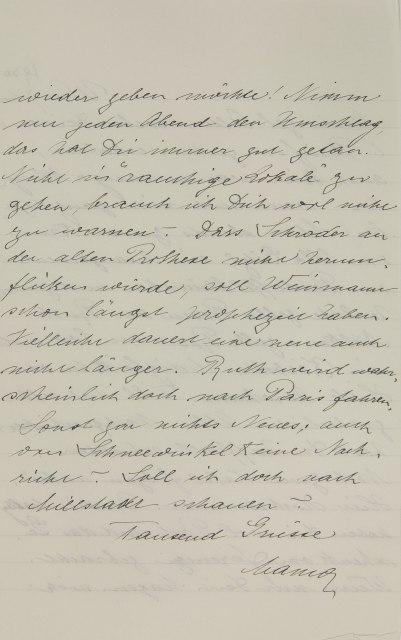 wieder geben möchte! Nimm
nur jeden Abend den Umschlag,
das hat Dir immer gut getan.
Nicht in "rauchige Lokale" zu
gehen, brauch ich Dich wol nicht
zu warnen – Dass Schröder an
der alten Prothese nicht herum-
flicken würde, soll Weinmann
schon längst prophezeit haben.
Vielleicht dauert eine neue auch
nicht länger. Ruth wird wahr-
scheinlich doch nach Paris fahren.
Sonst gar nichts Neues; auch
von Schneewinkel keine Nach-
richt – Soll ich doch nach
Millstadt schauen –
Tausend Grüsse
Mama